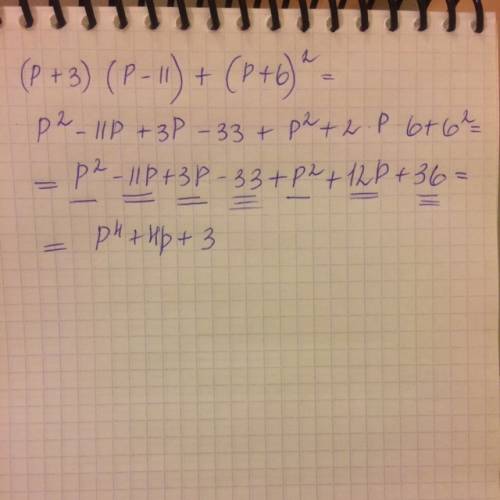 (P+3) (P-11) + (P+6)² =
P² - 11P + 3P - 33 + P² + 2·P 6 + 6² =
= P² - 11P + 3P - 33 + P² + 12P + 36 =
= P⁴ + 4P + 3